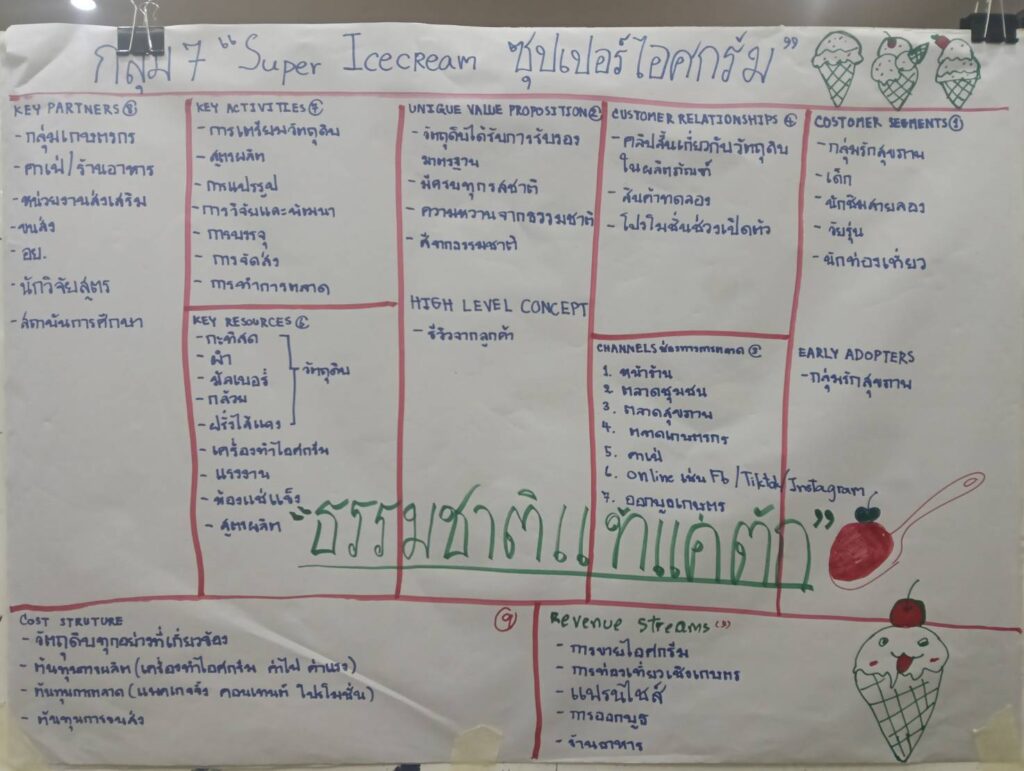 กลุ่ม 7 "Super Icecream ซุปเปอร์ไอศกรีม"
KEY PARTNERS ⑧
- กลุ่มเกษตรกร
- คาเฟ่/ร้านอาหาร
- หน่วยงานส่งเสริม
- ขนส่ง
- อย.
- นักวิจัยสูตร
- สถาบันการศึกษา
KEY ACTIVITIES ⑦
- การเตรียมวัตถุดิบ
- สูตรผลิต
- การแปรรูป
- การวิจัยและพัฒนา
- การบรรจุ
- การจัดส่ง
- การทำการตลาด
KEY RESOURCES ⑥
- กะทิสด
- ผำ
- มัลเบอรี่
- กล้วย
- ฝรั่งไส้แดง
วัตถุดิบ
- เครื่องทำไอศกรีม
- แรงงาน
- ห้องแช่แข็ง
- สูตรผลิต
UNIQUE VALUE PROPOSITION ②
- วัตถุดิบได้รับการรับรอง
มาตรฐาน
- มีครบทุกรสชาติ
- ความหวานจากธรรมชาติ
- สีจากธรรมชาติ
HIGH LEVEL CONCEPT
- รีวิวจากลูกค้า
CUSTOMER RELATIONSHIPS ④
- คลิปสั้นเกี่ยวกับวัตถุดิบ
ในผลิตภัณฑ์
- สินค้าทดลอง
- โปรโมชั่นช่วงเปิดตัว
CHANNELS ช่องทางการตลาด ③
1. หน้าร้าน
2 ตลาดชุมชน
3. ตลาดสุขภาพ
4. ตลาดเกษตรกร
5. คาเฟ่
6. online เช่น Fb/Tiktok/Instagram
7. ออกบูธเกษตร
COSTOMER SEGMENTS ①
- กลุ่มรักสุขภาพ
- เด็ก
- นักชิมสายลอง
- วัยรุ่น
- นักท่องเที่ยว
EARLY ADOPTERS
- กลุ่มรักสุขภาพ
"ธรรมชาติแท้แค่ตัก"
COST STRUTURE ⑨
- วัตถุดิบทุกอย่างที่เกี่ยวข้อง
- ต้นทุนการผลิต (เครื่องทำไอศกรีม ค่าไฟ ค่าแรง)
- ต้นทุนการตลาด (แพคเกจจิ้ง คอนเทนท์ โปรโมชั่น)
- ต้นทุนการขนส่ง
Revenue Streams (5)
- การขายไอศกรีม
- การท่องเที่ยวเชิงเกษตร
- แฟรนไชส์
- การออกบูธ
- ร้านอาหาร